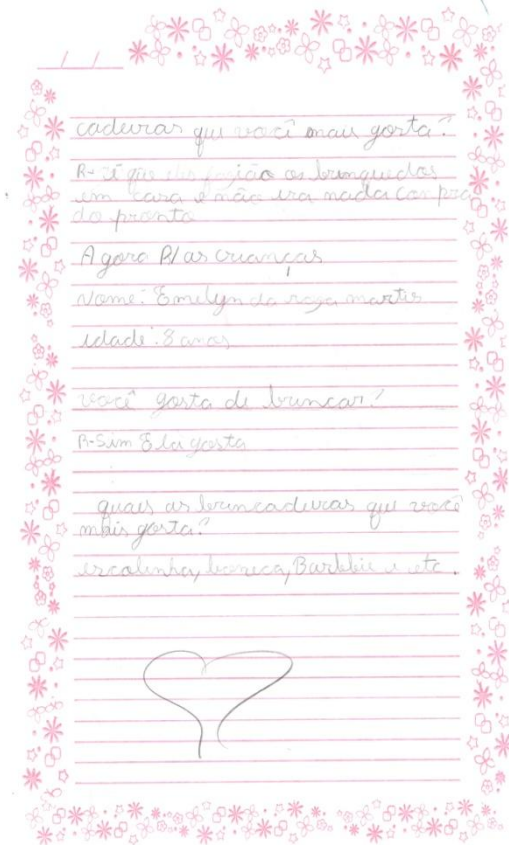 cadeiras que você mais gosta?
R- é que eles fazião os brinquedos
em casa e não era nada com pra
do pronto
Agora P/ as crianças
Nome: Emelyn da rosa martis
idade: 8 anos
você gosta de brincar?
R-Sim Ela gosta
quais as brincadeiras que você
mais gosta?
escolinha, boneca, Barbbie e etc.